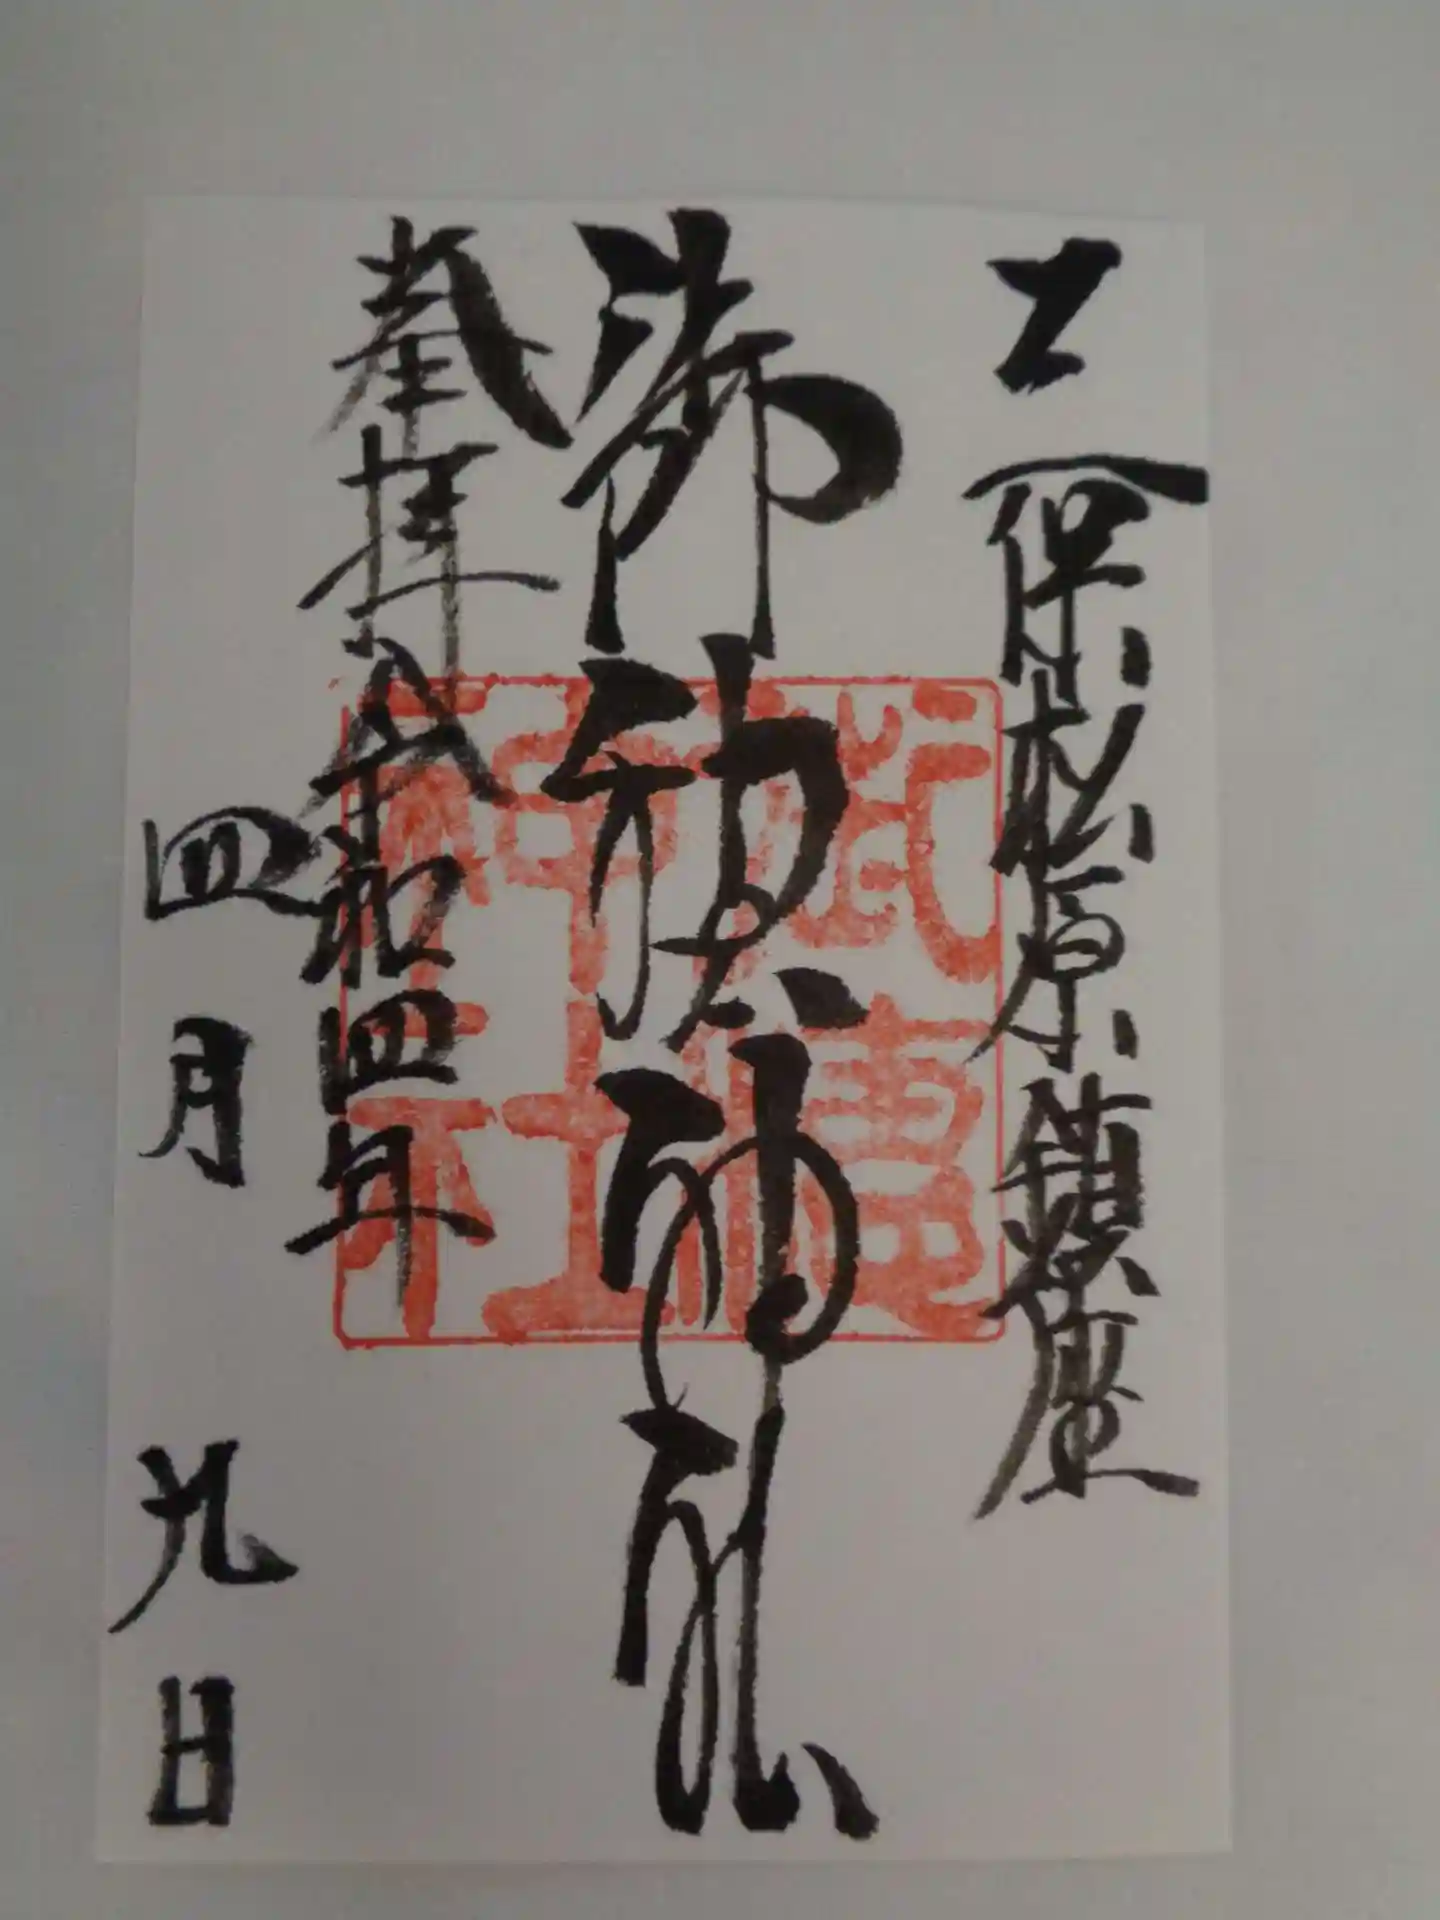 三保松原鎮座
御穂神社
奉拝 令和四年
四月九日
御穂
神社